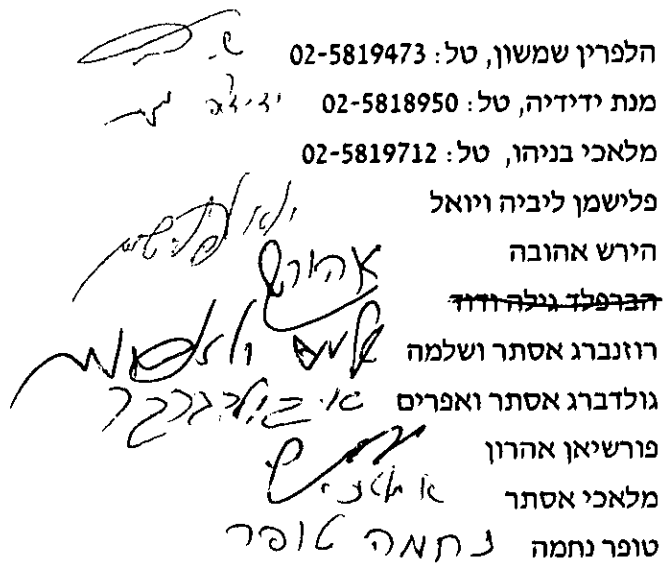 הלפרין שמשון, טל: 02-5819473
מנת ידידיה, טל: 02-5818950 ידידיה מנת
מלאכי בניהו, טל: 02-5819712
פלישמן ליביה ויואל
הירש אהובה
הברפלד גילה ודוד
רוזנברג אסתר ושלמה
גולדברג אסתר ואפרים א. גולדברג
פורשיאן אהרון
מלאכי אסתר
טופר נחמה נחמה טופר